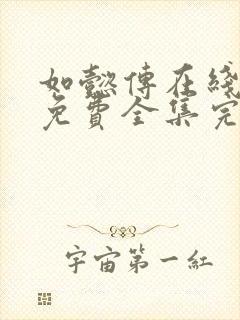 如懿傳在綫
免費全集完
宇宙第一紅